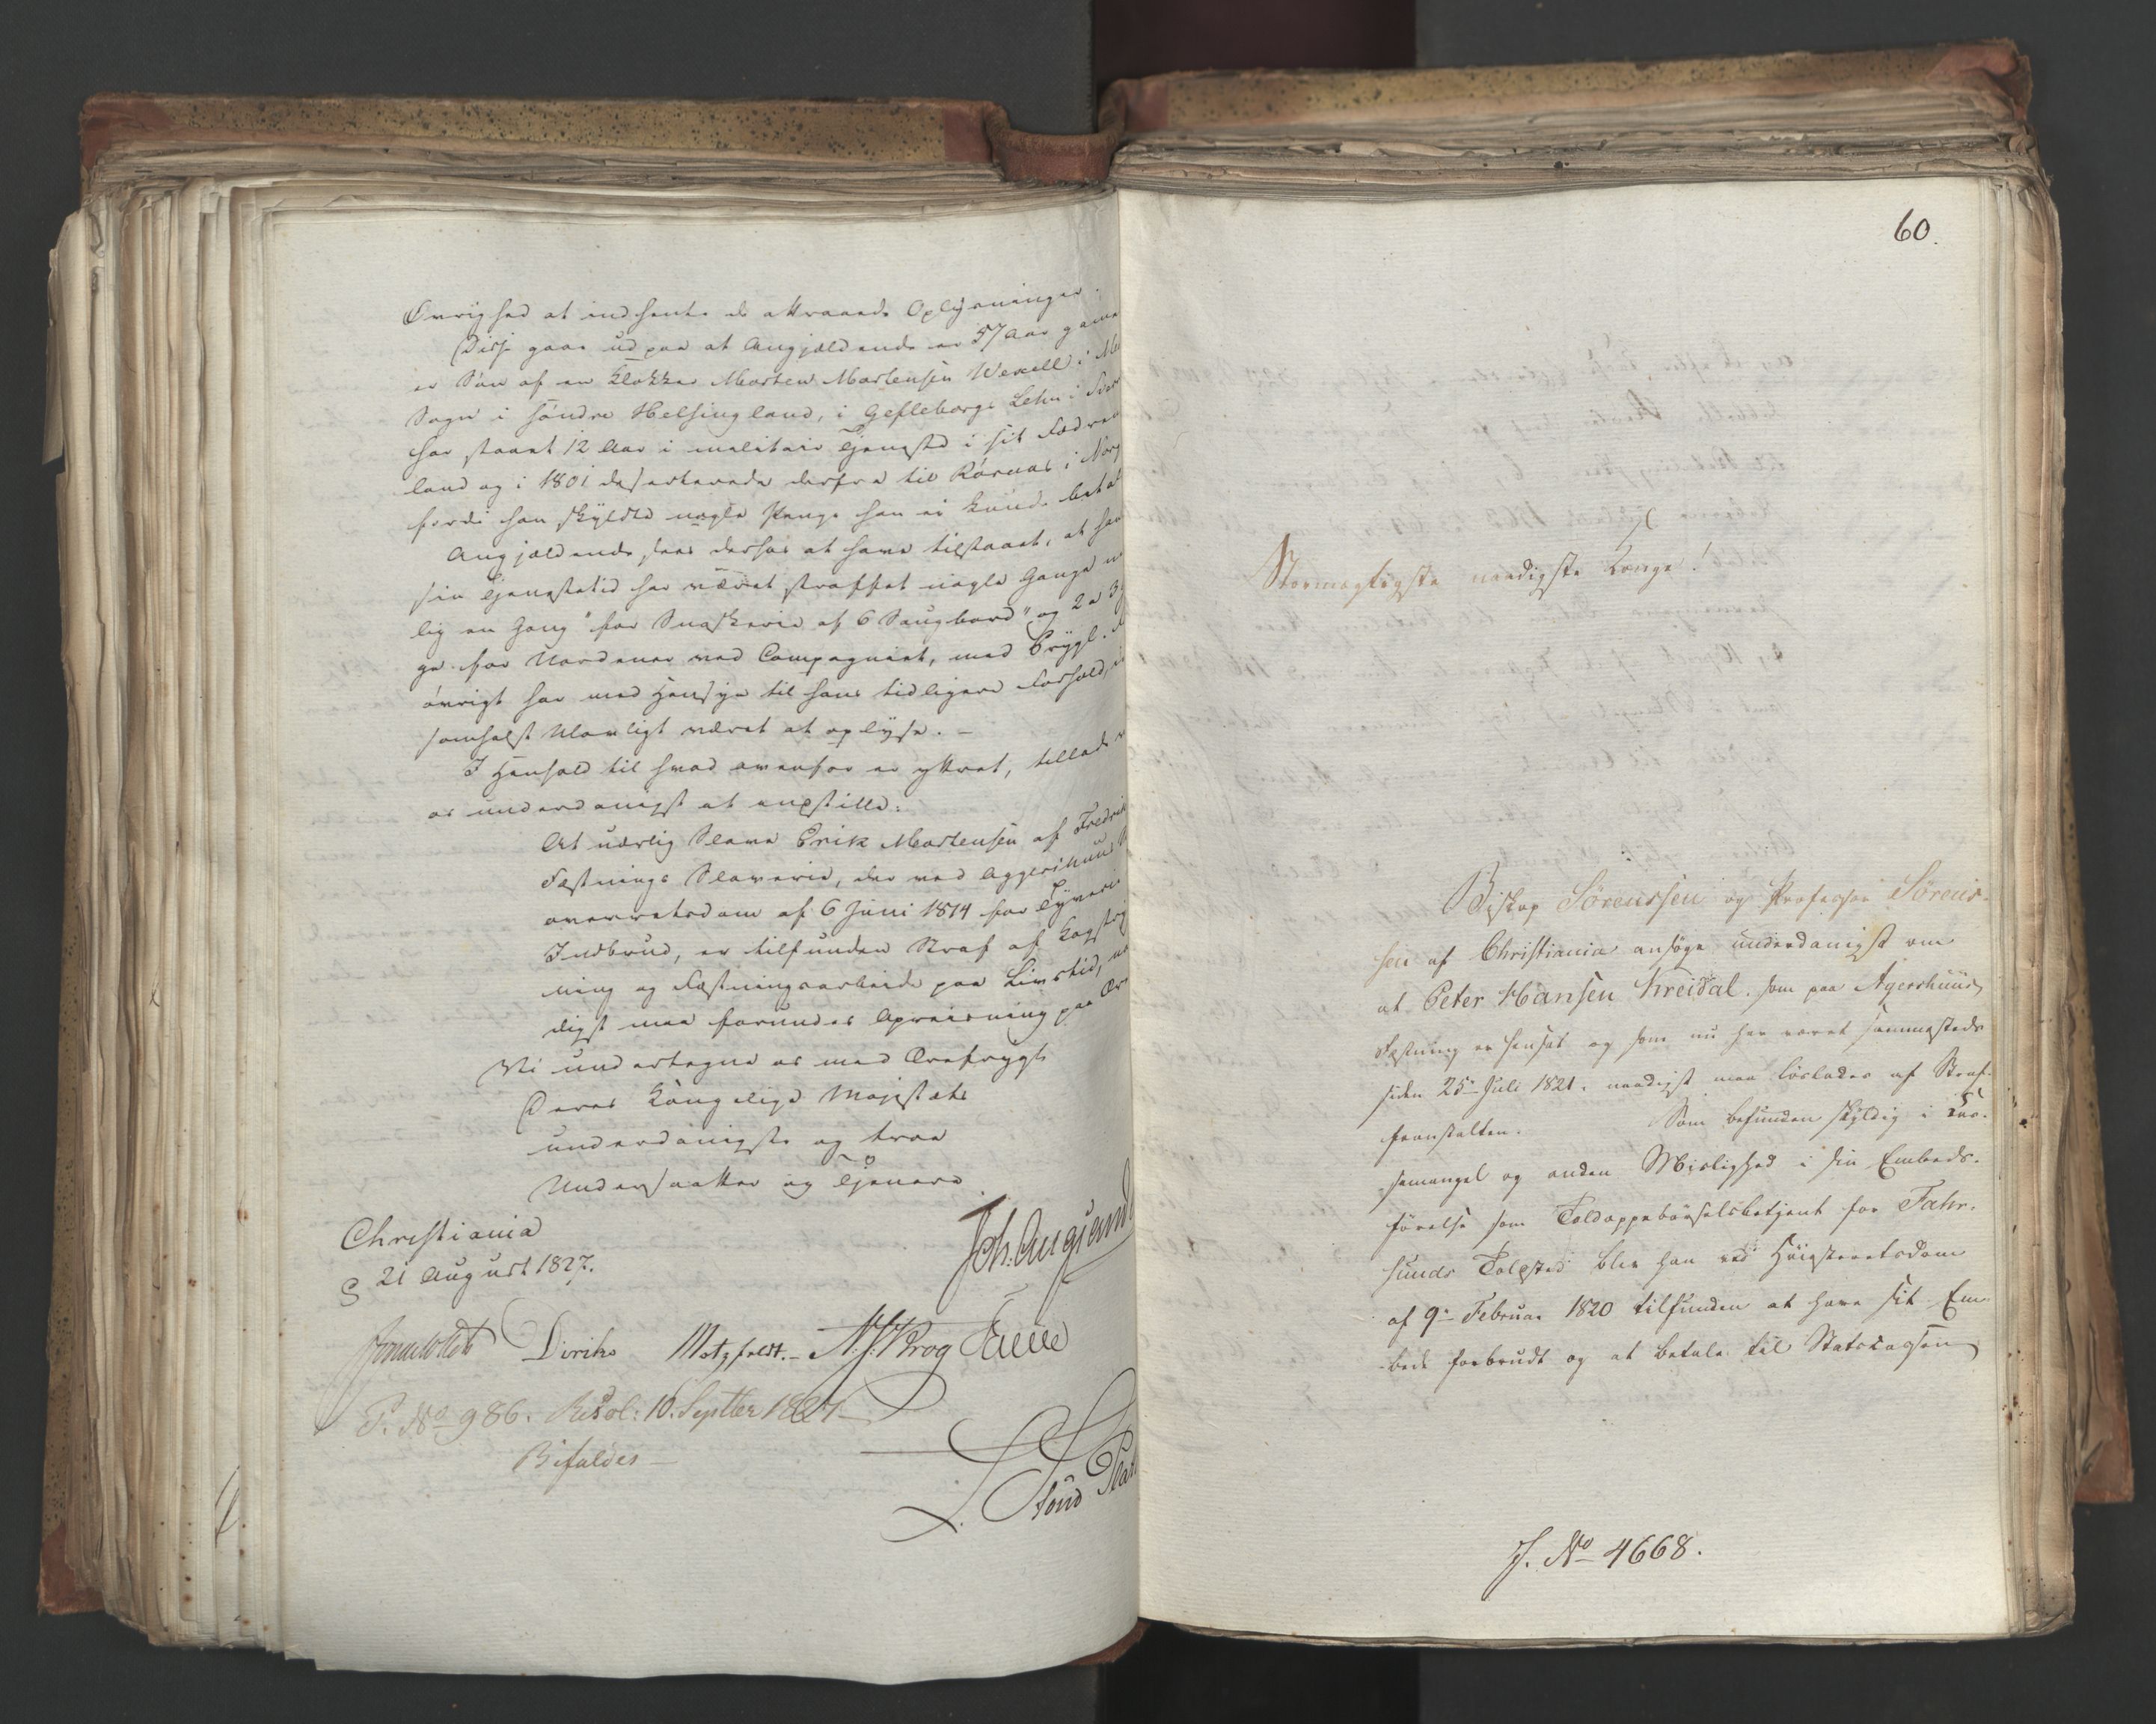 Øvrighed at indhente de attraaede Oplysninger.
Disse gaae ud paa at Angjældende er 57 Aar gam
er Søn af en Klokker Morten Mortensen Wexell i
Sogn i søndre Helsingland, i Gefleborgs Lehn i Sver
har staaet 12 Aar i militair Tjeneste i sit Fædrene
land og i 1801 deserterede derfra til Røraas i Norg
fordi han skyldte nogle Penge han ei kunde betal
Angjældende skal derhos at have tilstaaet, at han
sin Tjenestetid har været straffet nogle Gange n
lig en Gang "for Snaskerie af 6 Saugbord" og 2 a 3
ge for Uordener ved Compagniet, med Prygl. I
øvrigt har med Hensyn til hans tidligere Forhold, i
somhelst Ulovligt været at oplyse. –
I Henhold til hvad ovenfor er yttret, tillade v
os underdanigst at indstille:
At uærlig Slave Erik Mortensen af Fredrik
Fæstnings Slaverie, der ved Aggershuus
overretsdom af 6 Juni 1814 for Tyverie
Indbrud, er tilfunden Straf af Kagstryg
ning og Fæstningsarbeide paa Livstid, n
digst maa forundes Opreisning paa Ær
Vi undertegne os med Ærefrygt
Deres Kongelige Majestæts
underdanigste og troe
Undersaatter og Tjenere
Christiania
21 August 1827.
Diriks Motzfeldt. – N. J. Krog
P. No 986. Resol: 10. Septbr 1827
Bifaldes –
60.
Stormægtigste naadigste Konge!
Biskop Sörenssen og Professor Sörens-
sen af Christiania ansøge underdanigst om
at Peter Hansen Kreidal, som paa Agershuus
Fæstning er hensat og som nu har været sammesteds
siden 25de Juli 1821, naadigst maa løslades af Straf-
feanstalten. Som befunden skyldig i Cas-
semangel og anden Mislighed i sin Embeds-
førelse som Toldoppebørselsbetjent for Fahr-
sunds Tolpsted blev han ved Høiesteretsdom
af 9de Februar 1820 tilfunden at have sit Em-
bede forbrudt og at betale til Statscassen
J. No 4668.